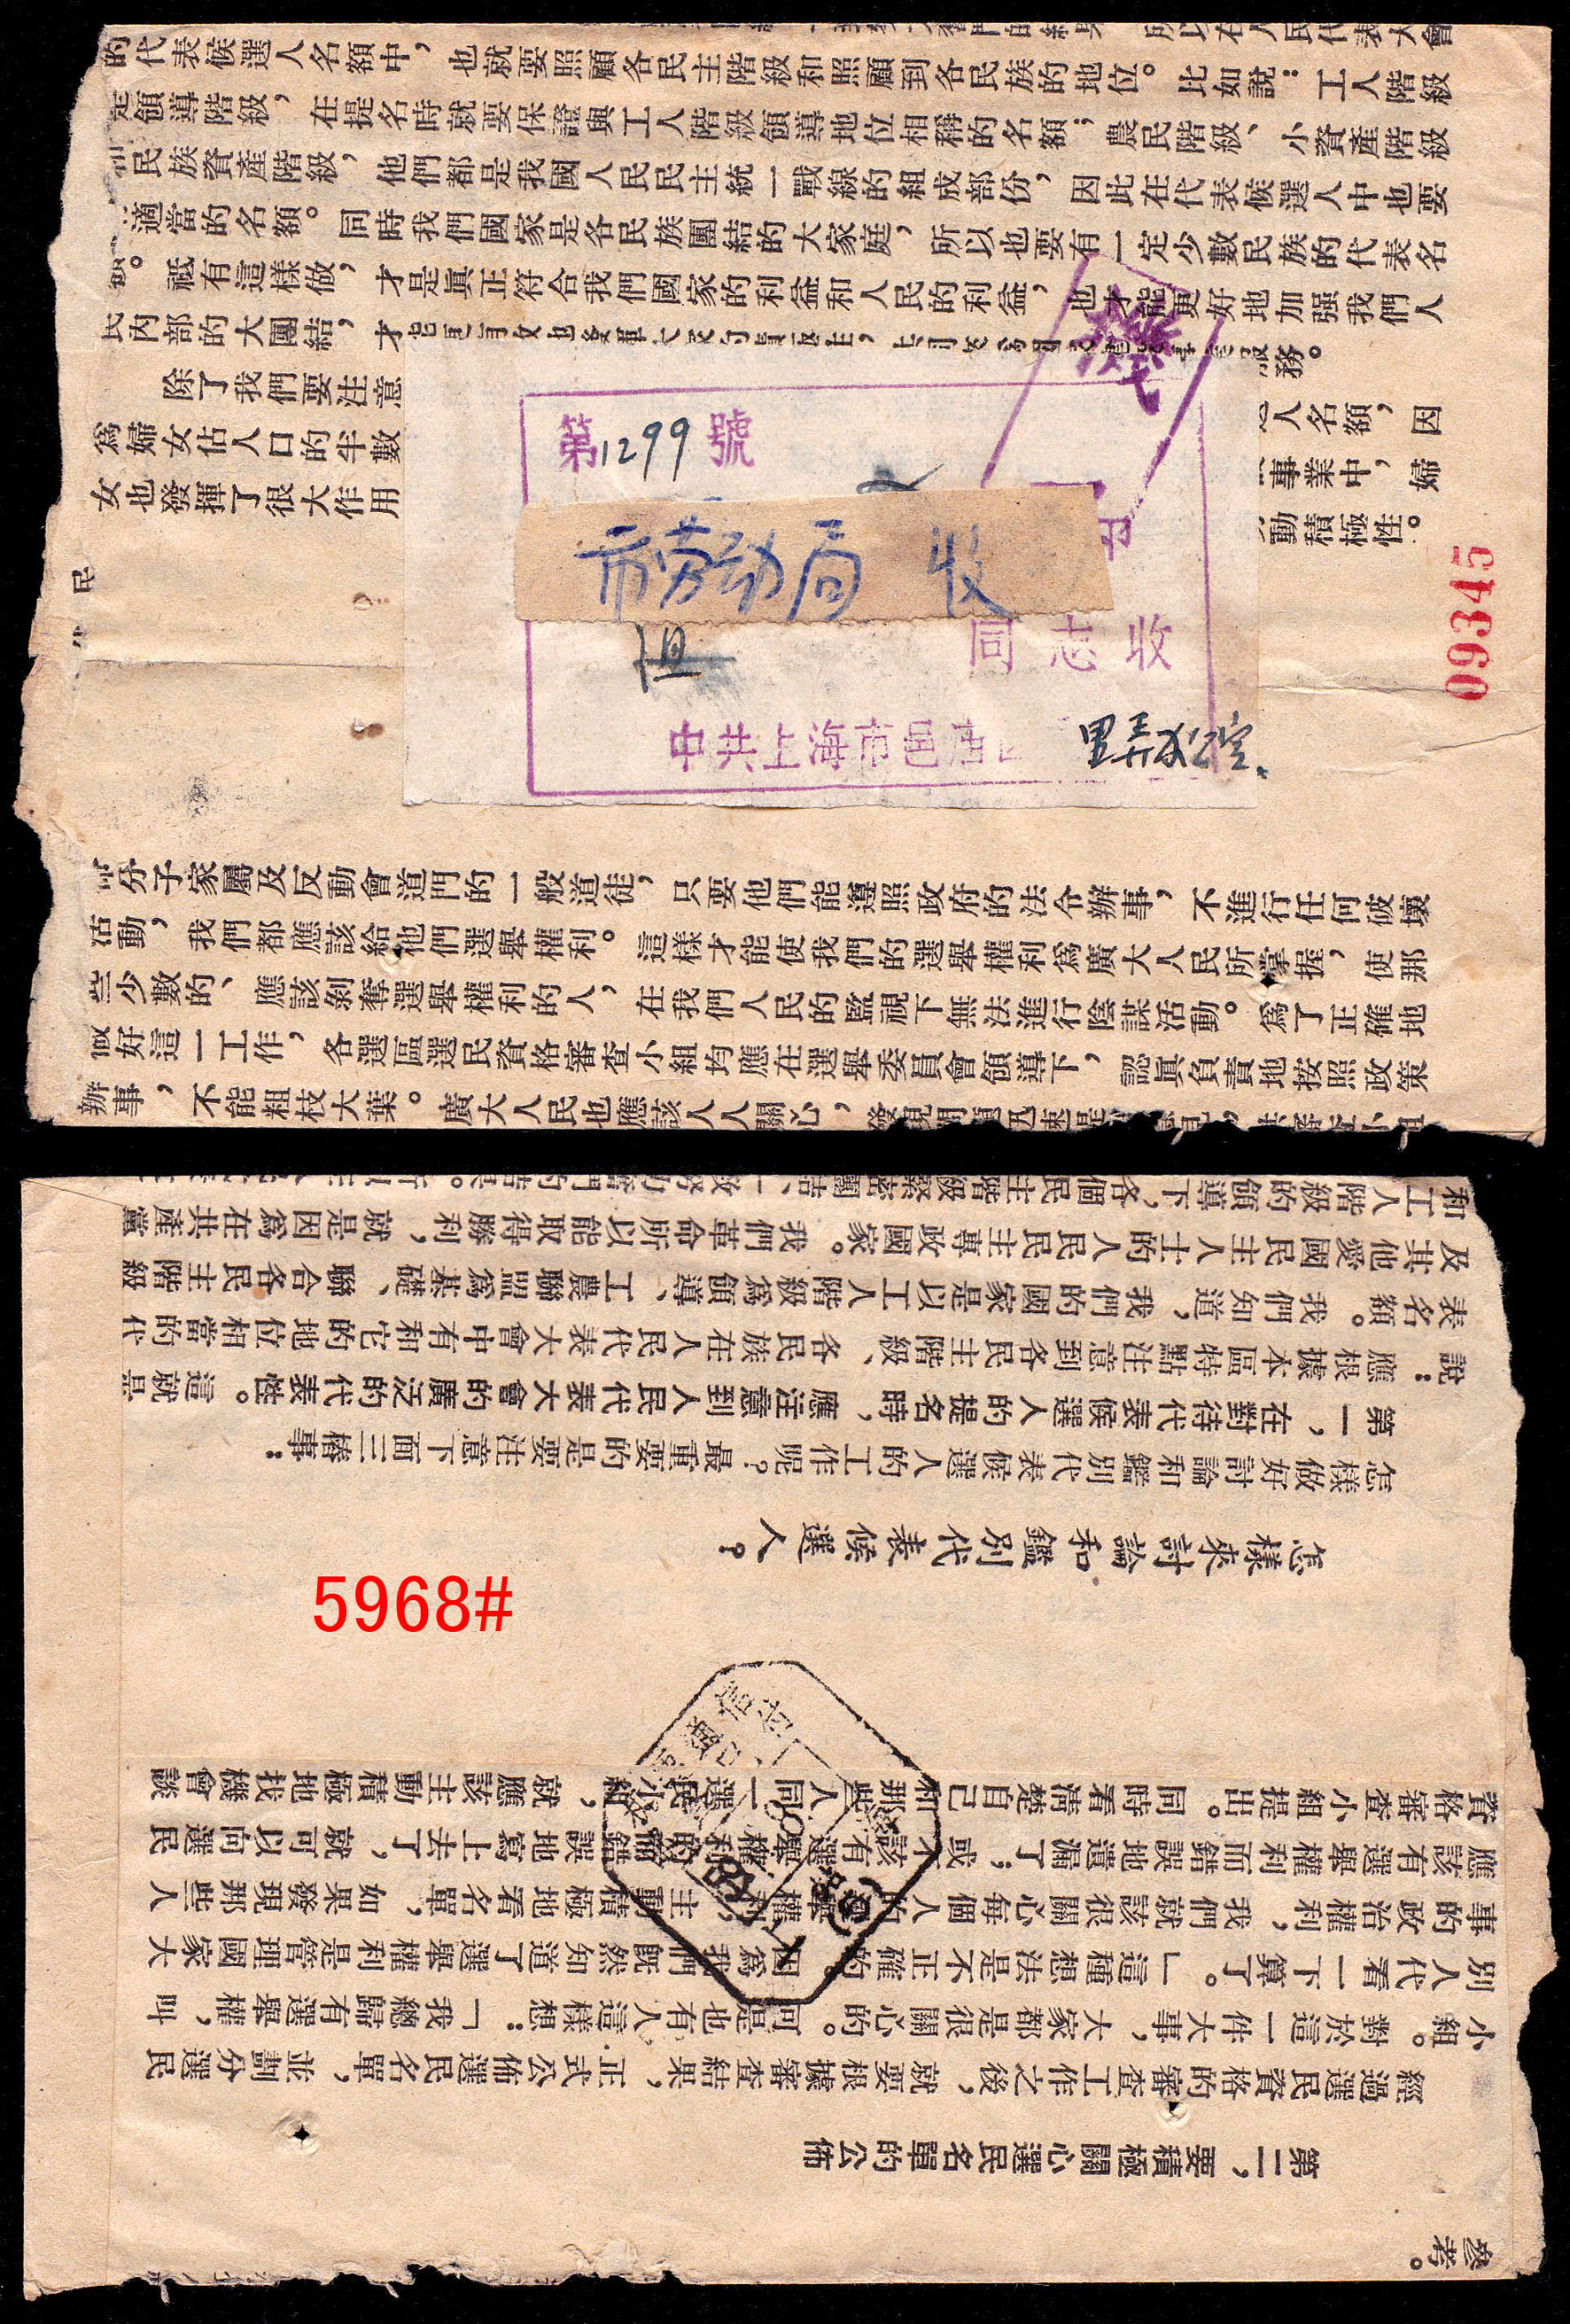 的代表候選人名額中，也就要照顧各民主階級和照顧到各民族的地位。比如說：工人階級
是領導階級，在提名時就要保證與工人階級領導地位相稱的名額；農民階級、小資產階級
民族資產階級，他們都是我國人民民主統一戰線的組成部份，因此在代表候選人中也要
適當的名額。同時我們國家是各民族團結的大家庭，所以也要有一定少數民族的代表名
額。祗有這樣做，才是眞正符合我們國家的利益和人民的利益，也才能更好地加強我們人
民內部的大團結，才
務。
除了我們要注意
人名額，因
爲婦女佔人口的半數
事業中，婦
女也發揮了很大作用
動積極性。
第1299號
市劳动局 收
同志收
中共上海市
里弄办公室
09345
分子家屬及反動會道門的一般道徒，只要他們能遵照政府的法令辦事，不進行任何破壞
活動，我們都應該給他們選舉權利。這樣才能使我們的選舉權利爲廣大人民所掌握，使那
些少數的、應該剝奪選舉權利的人，在我們人民的監視下無法進行陰謀活動。爲了正確地
做好這一工作，各選區選民資格審查小組均應在選舉委員會領導下，認眞負責地按照政策
辦事，不能粗枝大葉。廣大人民也應該人人關心，發現問題迅速
參考。
第二，要積極關心選民名單的公佈
經過選民資格的審查工作之後，就要根據審查結果，正式公佈選民名單，並劃分選民
小組。對於這一件大事，大家都是很關心的。可是也有人這樣想：「我總歸有選舉權，叫
別人代看一下算了。」這種想法是不正確的。因爲我們旣然知道了選舉權利是管理國家大
事的政治權利，我們就該很關心每個人的選舉權利，主動積極地看名單，如果發現那些人
應該有選舉權利而錯誤地遺漏了；或不該有選舉權利的而錯誤地寫上去了，就可以向選民
資格審查小組提出。同時看淸楚自己和那些人同一選民小組，就應該主動積極地找機會談
5968#
怎樣來討論和鑑別代表候選人？
怎樣做好討論和鑑別代表候選人的工作呢？最重要的是要注意下面三樁事：
第一，在對待代表候選人的提名時，應注意到人民代表大會的廣泛的代表性。這就是
說：應根據本區特點注意到各民主階級、各民族在人民代表大會中有和它的地位相當的代
表名額。我們知道，我們的國家是以工人階級爲領導、工農聯盟爲基礎、聯合各民主階級
及其他愛國民主人士的人民民主專政國家。我們革命所以能取得勝利，就是因爲在共產黨
和工人階級的領導下，各個民主階級緊密團結、一致努力奮鬥的結果。